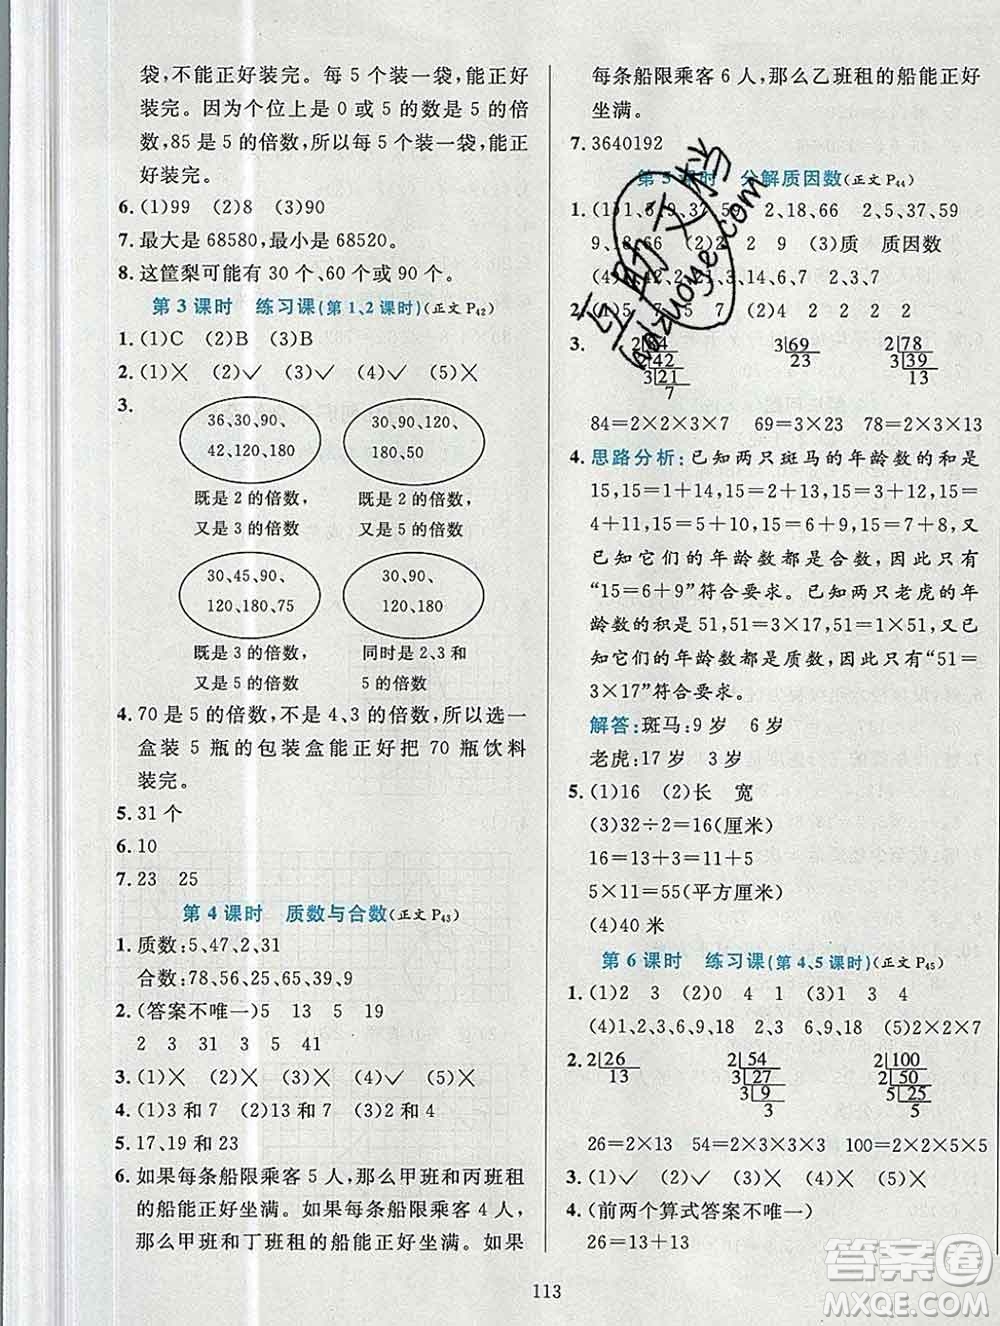 袋,不能正好装完。每 5 个装一袋,能正好
装完。因为个位上是 0 或 5 的数是 5 的倍
数,85 是 5 的倍数,所以每 5 个装一袋,能正
好装完。
6. (1)99 (2)8 (3)90
7. 最大是 68580,最小是 68520。
8. 这筐梨可能有 30 个、60 个或 90 个。
第 3 课时 练习课(第 1、2 课时)(正文 P42)
1. (1)C (2)B (3)B
2. (1)× (2)✓ (3)✓ (4)✓ (5)×
3.
36、30、90、
42、120、180
30、90、120、
180、50
既是 2 的倍数,
又是 3 的倍数
既是 2 的倍数,
又是 5 的倍数
30、45、90、
120、180、75
30、90、
120、180
既是 3 的倍数,
又是 5 的倍数
同时是 2、3 和
5 的倍数
4. 70 是 5 的倍数,不是 4、3 的倍数,所以选一
盒装 5 瓶的包装盒能正好把 70 瓶饮料
装完。
5. 31 个
6. 10
7. 23 25
第 4 课时 质数与合数(正文 P43)
1. 质数:5、47、2、31
合数:78、56、25、65、39、9
2. (答案不唯一)5 13 5 19
2 3 31 5 41
3. (1)× (2)× (3)✓ (4)× (5)×
4. (1)3 和 7 (2)13 和 7 (3)2 和 4
5. 17、19 和 23
6. 如果每条船限乘客 5 人,那么甲班和丙班租
的船能正好坐满。如果每条船限乘客 4 人,
那么甲班和丁班租的船能正好坐满。如果
每条船限乘客 6 人,那么乙班租的船能正好
坐满。
7. 3640192
第 5 课时 分解质因数(正文 P44)
1. (1)1、 9、37、59 2、18、66 2、5、37、59
9、18、66 (2)2 2 9 (3)质 质因数
(4) 3、14、6、7、42
2. (1)5 (2)4 2 2 2 2
3. 2|84 3|69 2|78
2|42 23 3|39
3|21 13
7
84=2×2×3×7 69=3×23 78=2×3×13
4. 思路分析:已知两只斑马的年龄数的和是
15,15=1+14,15=2+13,15=3+12,15=
4+11,15=5+10,15=6+9,15=7+8,又
已知它们的年龄数都是合数,因此只有
“15=6+9”符合要求。已知两只老虎的年
龄数的积是 51,51=3×17,51=1×51,又已
知它们的年龄数都是质数,因此只有“51=
3×17”符合要求。
解答:斑马:9 岁 6 岁
老虎:17 岁 3 岁
5. (1)16 (2)长 宽
(3)32÷2=16(厘米)
16=13+3=11+5
5×11=55(平方厘米)
(4)40 米
第 6 课时 练习课(第 4、5 课时)(正文 P45)
1. (1)2 3 (2)0 4 1 (3)1 3 4
(4)1、2、3、6、9、18 2、3 6、9、18 (5)2×2×7
2. 2|26 2|54 2|100
13 3|27 2|50
3|9 5|25
3 5
26=2×13 54=2×3×3×3 100=2×2×5×5
3. (1)✓ (2)✓ (3)× (4)✓ (5)×
4. (前两个算式答案不唯一)
26=13+13
113
答案圈
MXQE.COM